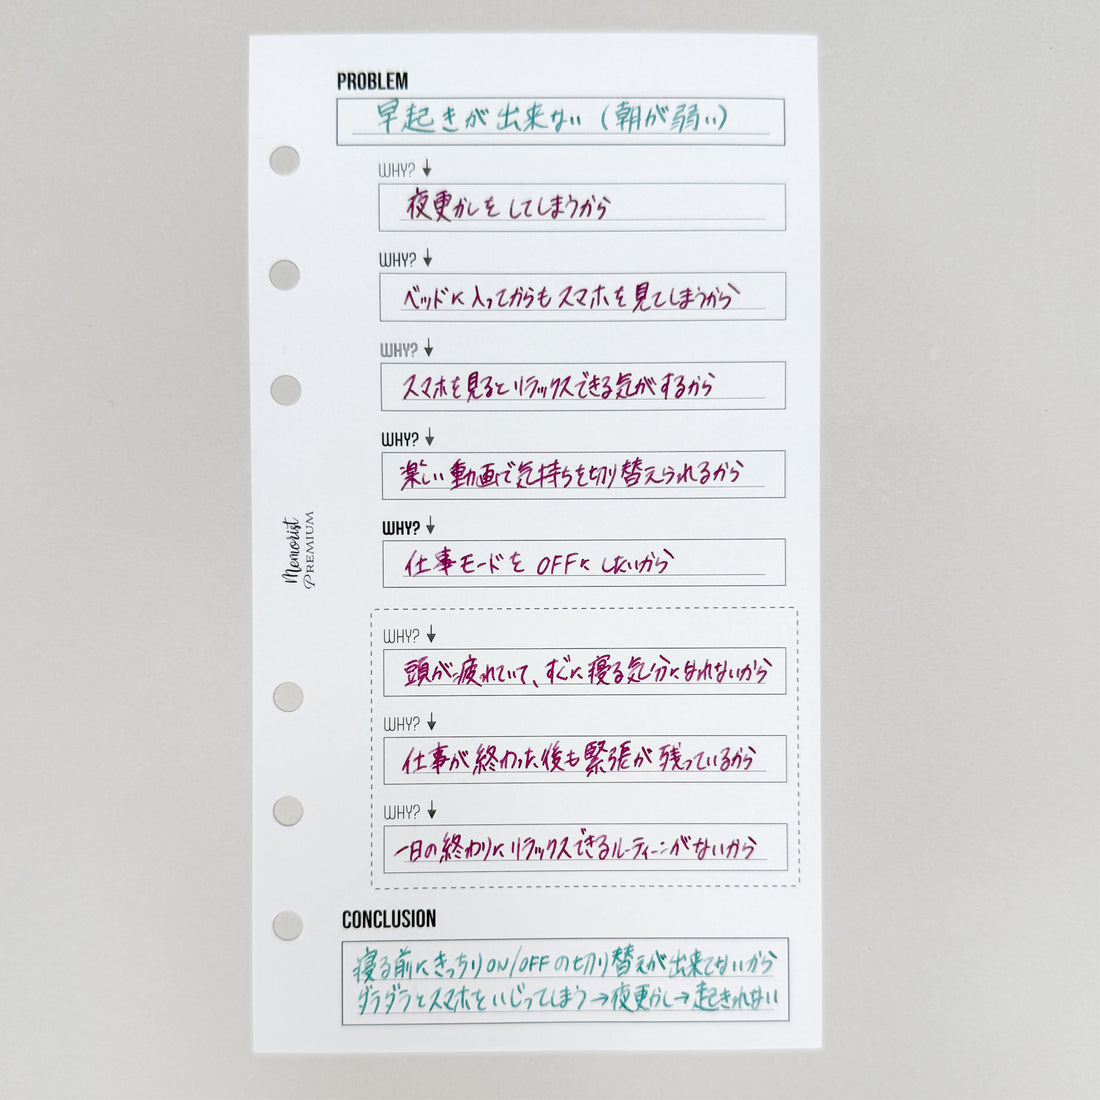 PROBLEM
早起きが出来ない(朝が弱い)
WHY?
夜更かしをしてしまうから
WHY?
ベッドに入ってからもスマホを見てしまうから
WHY?
スマホを見るとリラックスできる気がするから
WHY?
楽しい動画で気持ちを切り替えられるから
WHY?
仕事モードをOFFにしたいから
WHY?
頭が疲れていて、すぐに寝る気分になれないから
WHY?
仕事が終わった後も緊張が残っているから
WHY?
一日の終わりにリラックスできるルーティーンがないから
Memorist
PREMIUM
CONCLUSION
寝る前にきっちりON/OFFの切り替えが出来てないから
ダラダラとスマホをいじってしまう→夜更かし→起きれない